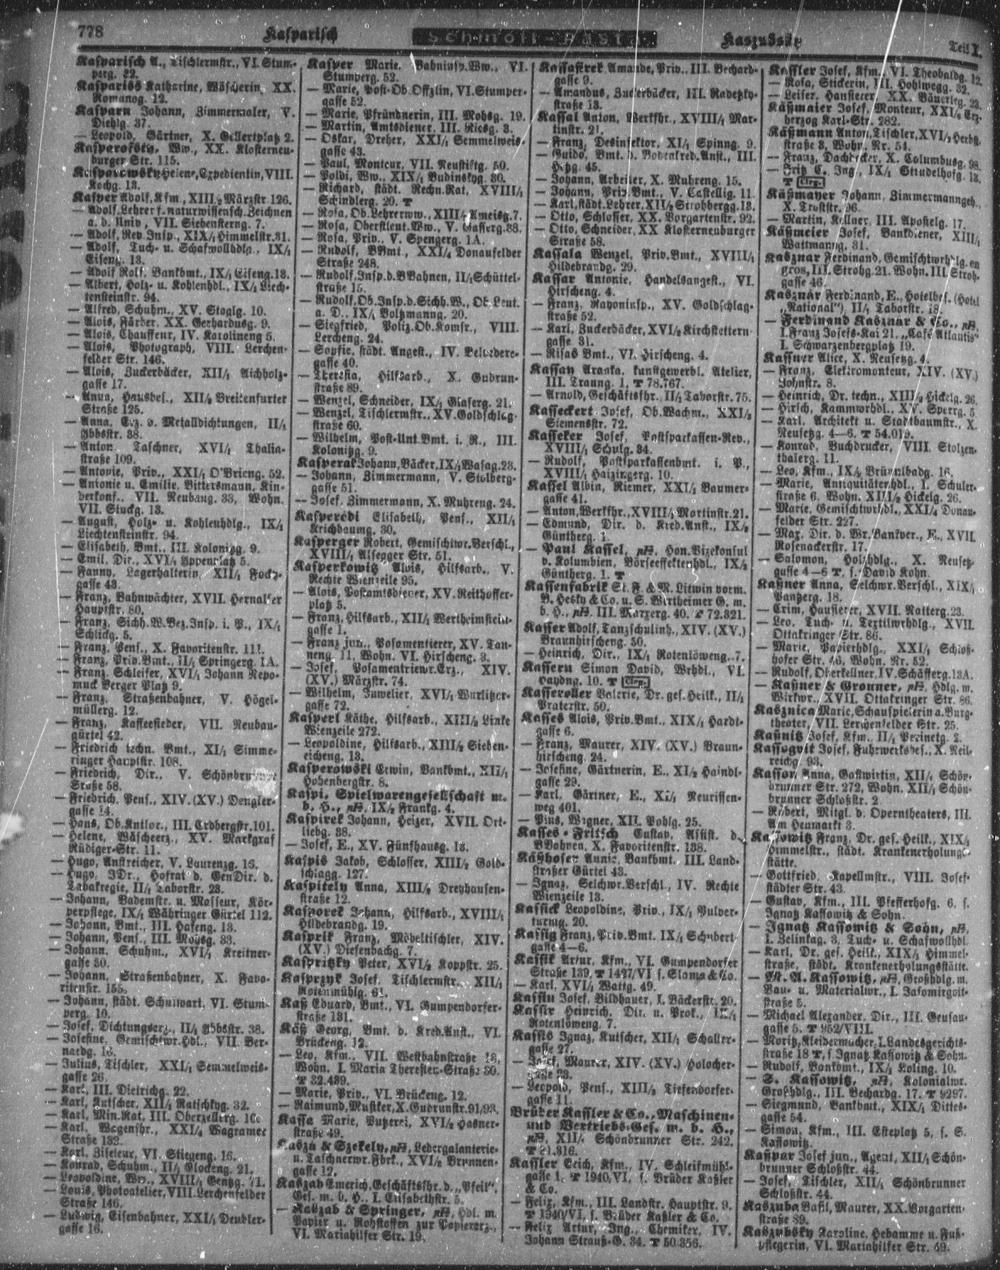 778
Kasparisch
Schmoll-Pasta
Kaszubsky
Teil I.
Kasparisch A., Tischlermstr., VI. Stum-
perg. 22.
Kaspariss Katharine, Wäscherin, XX.
Romanog. 12.
Kasparn Johann, Zimmermaler, V.
Diehlg. 37.
— Leopold, Gärtner, X. Gellertplatz 2.
Ww., XX. Klosterneu-
burger Str. 115.
Helene, Expedientin, VIII.
Kochg. 13.
Kasper Adolf, Kfm., XIII/2 Märzstr. 126.
— Adolf, Lehrer f. naturwissensch. Zeichnen
a. d. Univ., VII. Siebensterng. 7.
— Adolf, Rev. Insp., XIX/1 Himmelstr. 31.
— Adolf, Tuch- u. Schafwollhdlg., IX/1
Eiseng. 13.
— Adolf Rolf, Bankbmt., IX/1 Eiseng. 13.
— Albert, Holz- u. Kohlenhdl., IX/1 Liech-
tensteinstr. 94.
— Alfred, Schuhm., XV. Staglg. 10.
— Alois, Färber, XX. Gerhardusg. 9.
— Alois, Chauffeur, IV. Karolineng. 5.
— Alois, Photograph, VIII. Lerchen-
felder Str. 146.
— Alois, Zuckerbäcker, XII/1 Aichholz-
gasse 17.
— Anna, Hausbes., XII/2 Breitenfurter
Straße 125.
— Anna, Erz. v. Metalldichtungen, II/1
Ybbsstr. 38.
— Anton, Taschner, XVI/1 Thalia-
straße 109.
— Antonie, Priv., XXI/1 O'Brieng. 52.
— Antonie u. Emilie, Bittersmann, Kin-
derkonf., VII. Neubaug. 33, Wohn.
VII. Stuckg. 13.
— August, Holz- u. Kohlenhdlg., IX/1
Liechtensteinstr. 94.
— Elisabeth, Bmt., III. Kolonitzg. 9.
— Emil, Dir., XVI/1 Eppenplatz 5.
— Fanny, Lagerhalterin, XII/1 Fock-
gasse 43.
— Franz, Bahnwächter, XVII. Hernalser
Hauptstr. 80.
— Franz, Sichh.W.Bez.Insp. i. P., IX/1
Schlickg. 5.
— Franz, Pens., X. Favoritenstr. 111.
— Franz, Priv.Bmt., II/1 Springerg. 1A.
— Franz, Schleifer, XVI/1 Johann Nepo-
muk Berger Platz 9.
— Franz, Straßenbahner, V. Högel-
müllerg. 12.
— Franz, Kaffeesieder, VII. Neubau-
gürtel 42.
— Friedrich, techn. Bmt., XI/1 Simme-
ringer Hauptstr. 108.
— Friedrich, Dir., V. Schönbrunner
Straße 58.
— Friedrich, Pens., XIV. (XV.) Dengler-
gasse 14.
— Hans, Ob.Kntlor., III. Erdbergstr. 101.
— Helene, Wäscheerz., XV. Markgraf
Rüdiger-Str. 11.
— Hugo, Anstreicher, V. Laurenzg. 15.
— Hugo, JDr., Hofrat d. GenDir. d.
Tabakregie, II/1 Taborstr. 23.
— Johann, Bademstr. u. Masseur, Kör-
perpflege, IX/2 Währinger Gürtel 112.
— Johann, Bmt., III. Hafeng. 13.
— Johann, Pens., III. Mohsg. 33.
— Johann, Schuhm., XVI/1 Kreitner-
gasse 30.
— Johann, Straßenbahner, X. Favo-
ritenstr. 155.
— Johann, städt. Schulwart, VI. Stum-
perg. 10.
— Josef, Dichtungserz., II/1 Ybbsstr. 38.
— Josefine, Gemischtwr.Hdl., VII. Ber-
nardg. 15.
— Julius, Tischler, XXI/4 Semmelweis-
gasse 26.
— Karl, III. Dietrichg. 22.
— Karl, Kutscher, XII/1 Ratschkyg. 32.
— Karl, Min.Rat, III. Oberzellerg. 10
— Karl, Wagenfhr., XXI/4 Wagramer
Straße 132.
— Karl, Ziseleur, VI. Stiegeng. 16.
— Konrad, Schuhm., II/2 Glockeng. 21.
— Leopoldine, Ww., XVIII/1 Gentzg. 71.
— Louis, Photoatelier, VIII. Lerchenfelder
Straße 146.
— Ludwig, Eisenbahner, XXI/1 Deubler-
gasse 16.
Kasper Marie, Bahninsp.Ww., VI.
Stumperg. 52.
— Marie, Post-Ob.Offzlin, VI. Stumper-
gasse 52.
— Marie, Pfründnerin, III. Mohsg. 19.
— Martin, Amtsdiener, III. Riesg. 3.
— Oskar, Dreher, XXI/4 Semmelweis-
gasse 43.
— Paul, Monteur, VII. Neustiftg. 50.
— Poldi, Ww., XIX/1 Budinskyg. 30.
— Richard, städt. Rechn.Rat, XVIII/1
Schindlerg. 20. T
— Rosa, Ob.Lehrersww., XIII/4 Ameisg. 7.
— Rosa, Oberstleut.Ww., V. Gasserg. 38.
— Rosa, Priv., V. Spengerg. 1A.
— Rudolf, BBmt., XXI/4 Donaufelder
Straße 248.
— Rudolf, Insp.d.B.Bahnen, II/1 Schüttel-
straße 15.
— Rudolf, Ob.Insp.d.Sichh.W., Ob.Leut.
a. D., IX/4 Boltzmanng. 20.
— Siegfried, Poliz.Ob.Komsr., VIII.
Lercheng. 24.
— Sophie, städt. Angest., IV. Belvedere-
gasse 40.
— Theresia, Hilfsarb., X. Gudrun-
straße 89.
— Wenzel, Schneider, IX/1 Glaserg. 21.
— Wenzel, Tischlermstr., XV. Goldschlag-
straße 60.
— Wilhelm, Post-Unt.Bmt. i. R., III.
Kolonitzg. 9.
Kasperak Johann, Bäcker, IX/1 Wasag. 23.
— Johann, Zimmermann, V. Stolberg-
gasse 51.
— Josef, Zimmermann, X. Muhreng. 24.
Kasperedi Elisabeth, Pens., XII/1
Kirchbaumg. 30.
Kasperger Robert, Gemischtwr.Verschl.,
XVIII/1 Alsegger Str. 51.
Kasperkowitz Alois, Hilfsarb., V.
Rechte Wienzeile 95.
— Alois, Postamtsdiener, XV. Reithoffer-
platz 5.
— Franz, Hilfsarb., XII/1 Wertheimstein-
gasse 1.
— Franz jun., Posamentierer, XV. Tan-
neng. 11, Wohn. VI. Hirscheng. 3.
— Josef, Posamentriewr.Erz., XIV.
(XV.) Märzstr. 74.
— Wilhelm, Juwelier, XVI/1 Wurlitzer-
gasse 72.
Kasperl Käthe, Hilfsarb., XIII/1 Linke
Wienzeile 272.
— Leopoldine, Hilfsarb., XIII/1 Sieben-
eicheng. 13.
Kasperowski Erwin, Bankbmt., XII/1
Hohenbergstr. 8.
Kaspi, Spielwarengesellschaft m.
b. H., IX/1 Frankg. 4.
Kaspirek Johann, Heizer, XVII. Ort-
liebg. 38.
— Josef, E., XV. Fünfhausg. 13.
Kaspis Jakob, Schlosser, XIII/2 Gold-
schlagg. 127.
Kaspitely Anna, XIII/2 Dreyhausen-
straße 12.
Kasporek Johann, Hilfsarb., XVIII/1
Hildebrandg. 19.
Kasprik Franz, Möbeltischler, XIV.
(XV.) Diefenbachg. 7.
Kaspritzky Peter, XVI/2 Koppstr. 25.
Kasprzyk Josef, Tischlermstr., XII/1
Rotenmühlg. 62.
Kaß Eduard, Bmt., VI. Gumpendorfer-
straße 131.
Käß Georg, Bmt. d. Kred.Anst., VI.
Brückeng. 12.
— Leo, Kfm., VII. Westbahnstraße 18,
Wohn. I. Maria Theresien-Straße 30.
T 32.489.
— Marie, Priv., VI. Brückeng. 12.
— Raimund, Musiker, X. Gudrunstr. 91/93.
Kassa Marie, Putzerei, XVI/2 Hasner-
straße 49.
Kasza & Szekely, Ledergalanterie-
u. Taschnerwr.Fbrk., XVI/2 Brunnen-
gasse 12.
Kaszab Emerich, Geschäftsfhr. d. „Pfeil“
Ges. m. b. H., I. Elisabethstr. 5.
— Kaszab & Springer, Hdl. m.
Papier u. Rohstoffen zur Papiererz.,
VI. Mariahilfer Str. 19.
Kassasirek Amande, Priv., III. Bechard-
gasse 9.
— Amandus, Zuckerbäcker, III. Radetzky-
straße 13.
Kassal Anton, Werkfhr., XVIII/1 Mar-
tinstr. 21.
— Franz, Desinfektor, XI/1 Spinng. 9.
— Guido, Bmt. d. Bodenkred.Anst., III.
Hetzg. 45.
— Johann, Arbeiter, X. Muhreng. 15.
— Johann, Priv.Bmt., V. Castellig. 11.
— Karl, städt. Lehrer, XII/1 Strohbergg. 13.
— Otto, Schlosser, XX. Vorgartenstr. 92.
— Otto, Schneider, XX. Klosterneuburger
Straße 58.
Kassala Wenzel, Priv.Bmt., XVIII/1
Hildebrandg. 29.
Kassar Antonie, Handelsangest., VI.
Hirscheng. 4.
— Franz, Rayoninsp., XV. Goldschlag-
straße 52.
— Karl, Zuckerbäcker, XVI/2 Kirchstettern-
gasse 31.
— Bmt., VI. Hirscheng. 4.
Kassay Aranka, kunstgewerbl. Atelier,
III. Traung. 1. T 78.767.
— Arnold, Geschäftsfhr., II/2 Taborstr. 75.
Kasseckert Josef, Ob.Wachm., XXI/2
Siemensstr. 72.
Kasseker Josef, Postsparkassen-Rev.,
XVIII/2 Schulg. 34.
— Rudolf, Postsparkassenbmt. i. P.,
XVIII/1 Haizingerg. 10.
Kassel Albin, Riemer, XXI/1 Baumer-
gasse 41.
— Anton, Werkfhr., XVIII/1 Martinstr. 21.
— Edmund, Dir. d. Kred.Anst., IX/1
Güntherg. 1.
— Paul Kassel, Hon.Vizekonsul
v. Kolumbien, Börseeffektenhdl., IX/1
Güntherg. 1. T
Kassenfabrik St. F. & M. Litwin vorm.
B. Hesky & Co. u. S. Wertheimer G. m.
b. H., III. Marxerg. 40. T 72.321.
Kasser Adolf, Tanzschulinh., XIV. (XV.)
Braunhirscheng. 50.
— Heinrich, Dir., IX/1 Rotenlöweng. 7.
Kassern Simon David, Wrhdl., VI.
Haydng. 10. T
Kasseroller Valerie, Dr. ges. Heilk., II/1
Praterstr. 50.
Kasses Alois, Priv.Bmt., XIX/1 Hardt-
gasse 6.
— Franz, Maurer, XIV. (XV.) Braun-
hirscheng. 24.
— Josefine, Gärtnerin, E., XI/2 Haindl-
gasse 29.
— Karl, Gärtner, E., XI/1 Neurissen-
weg 401.
— Pius, Wagner, XII. Pohlg. 25.
Kasses-Fritsch Gustav, Assist. d.
B.Bahnen, X. Favoritenstr. 138.
Käßhofer Annie, Bankbmt., III. Land-
straßer Gürtel 43.
— Ignaz, Selchwr.Verschl., IV. Rechte
Wienzeile 13.
Kassick Leopoldine, Priv., IX/1 Pulver-
turmg. 20.
Kassig Franz, Priv.Bmt., IX/1 Schubert-
gasse 4–6.
Kassik Artur, Kfm., VI. Gumpendorfer
Straße 139. T 1497/VI s. Slama & Co.
— Karl, XVI/1 Wattg. 49.
Kassin Josef, Bildhauer, I. Bäckerstr. 20.
Kassir Heinrich, Dir. u. Prok., IX/1
Rotenlöweng. 7.
Kassis Ignaz, Kutscher, XII/1 Schaller-
gasse 27.
— Josef, Maurer, XIV. (XV.) Holocher-
gasse 23.
— Leopold, Pens., XIII/2 Tiefendorfer-
gasse 11.
Brüder Kassler & Co., Maschinen-
und Vertriebs-Ges. m. b. H.,
XII/1 Schönbrunner Str. 242.
T 21.316.
Kassler Erich, Kfm., IV. Schleifmühl-
gasse 1. T 1940/VI, s. Brüder Kaßler
& Co.
— Felix, Kfm., III. Landstr. Hauptstr. 9.
T 1940/VI, s. Brüder Kaßler & Co.
— Felix Artur, Ing., Chemiker, IV.
Johann Strauß-G. 34. T 50.356.
Kassler Josef, Kfm., VI. Theobaldg. 12.
— Rosa, Stickerin, VII. Hohlwegg. 32.
— Leiser, Hausierer, XX. Bäuerleg. 23.
Käßmaier Josef, Monteur, XXI/2 Erz-
herzog Karl-Str. 282.
Käßmann Anton, Tischler, XVI/2 Herbst-
straße 3, Wohn. Nr. 54.
— Franz, Dachdecker, X. Columbusg. 98.
— Fritz C., Ing., IX/4 Strudelhofg. 13.
T
Käßmayer Johann, Zimmermanngeh.,
X. Troststr. 96.
— Martin, Kellner, III. Apostelg. 17.
Käßmeier Josef, Bankdiener, XIII/1
Wattmanng. 31.
Kasznar Ferdinand, Gemischtwrhdlg. en
gros, III. Strohg. 21, Wohn. III. Stroh-
gasse 46.
Kasznár Ferdinand, E., Hotelbes. (Hotel
„National“), II/1 Taborstr. 18.
— Ferdinand Kasznar & Co.,
I. Franz Josefs-Kai 21, „Café Atlantis“
I. Schwarzenbergplatz 19.
Kassner Alice, X. Neusetzg. 4.
— Franz, Elektromonteur, XIV. (XV.)
Johnstr. 8.
— Heinrich, Dr. techn., XIII/2 Hickelg. 26.
— Hirsch, Kammwrhdl., XV. Sperrg. 5.
— Karl, Architekt u. Stadtbaumstr., X.
Neusetzg. 4–6. T 54.019.
— Konrad, Buchdrucker, VIII. Stolzen-
thalerg. 11.
— Leo, Kfm., IX/1 Grünentorg. 16.
— Marie, Antiquitäten.hdl., I. Schuler-
straße 6, Wohn. XIII/1 Hickelg. 26.
— Marie, Gemischtwrhdl., XXI/4 Donau-
felder Str. 227.
— Max, Dir. d. Wr. Bankver., E., XVII.
Rosenackerstr. 17.
— Salomon, Holzhdlg., X. Neusetz-
gasse 4–6 T, s. David Kohn.
Kaßner Anna, Selchwr.Verschl., XIX/1
Panzerg. 18.
— Erim, Hausierer, XVII. Natterg. 23.
— Leo, Tuch- u. Textilwrhdlg., XVII.
Ottakringer Str. 86.
— Marie, Papierhdlg., XXI/4 Schloß-
hofer Str. 46, Wohn. Nr. 52.
— Rudolf, Oberkellner, IV. Schäfferg. 13A.
— Kaßner & Grouner, Hdlg. m.
Wirkwr., XVII. Ottakringer Str. 86.
Kasznica Marie, Schauspielerin a. Burg-
theater, VII. Lerchenfelder Str. 25.
Kaßnitz Josef, Kfm., II/2 Perinetg. 2.
Kassogvit Josef, Fuhrwerksbes., X. Reil-
reichg. 93.
Kasson Anna, Gastwirtin, XII/1 Schön-
brunner Str. 272, Wohn. XII/1 Schön-
brunner Schloßstr. 2.
— Robert, Mitgl. d. Operntheaters, III.
Am Heumarkt 3.
Kassowitz Franz, Dr. ges. Heilk., XIX/1
Himmelstr., städt. Krankenerholungs-
stätte.
— Gottfried, Kapellmstr., VIII. Josef-
städter Str. 43.
— Gustav, Kfm., III. Pfefferhofg. 6, s.
Ignaz Kassowitz & Sohn.
— Ignatz Kassowitz & Sohn,
I. Zelinkag. 3, Tuch- u. Schafwollhdl.
— Karl, Dr. ges. Heilk., XIX/1 Himmel-
straße, städt. Krankenerholungsstätte.
— M. A. Kassowitz, Großhdlg. m.
Bau- u. Materialwr., I. Jasomirgott-
straße 5.
— Michael Alexander, Dir., III. Geusau-
gasse 5. T 952/VIII.
— Moritz, Kleidermacher, I. Landesgerichts-
straße 18 T, s. Ignaz Kassowitz & Sohn.
— Rudolf, Bankbmt., IX/4 Löling. 10.
— S. Kassowitz, Kolonialwr.
Großhdlg., III. Bechardg. 17. T 9297.
— Siegmund, Bankbmt., XIX/1 Dittes-
gasse 54.
— Simon, Kfm., III. Esteplatz 5, s. S.
Kassowitz.
Kaßpar Josef jun., Agent, XII/1 Schön-
brunner Schloßstr. 44.
— Josef, Tischler, XII/1 Schönbrunner
Schloßstr. 44.
Kaszuba Basil, Maurer, XX. Vorgarten-
straße 89.
Kaszubsky Karoline, Hebamme u. Fuß-
pflegerin, VI. Mariahilfer Str. 49.